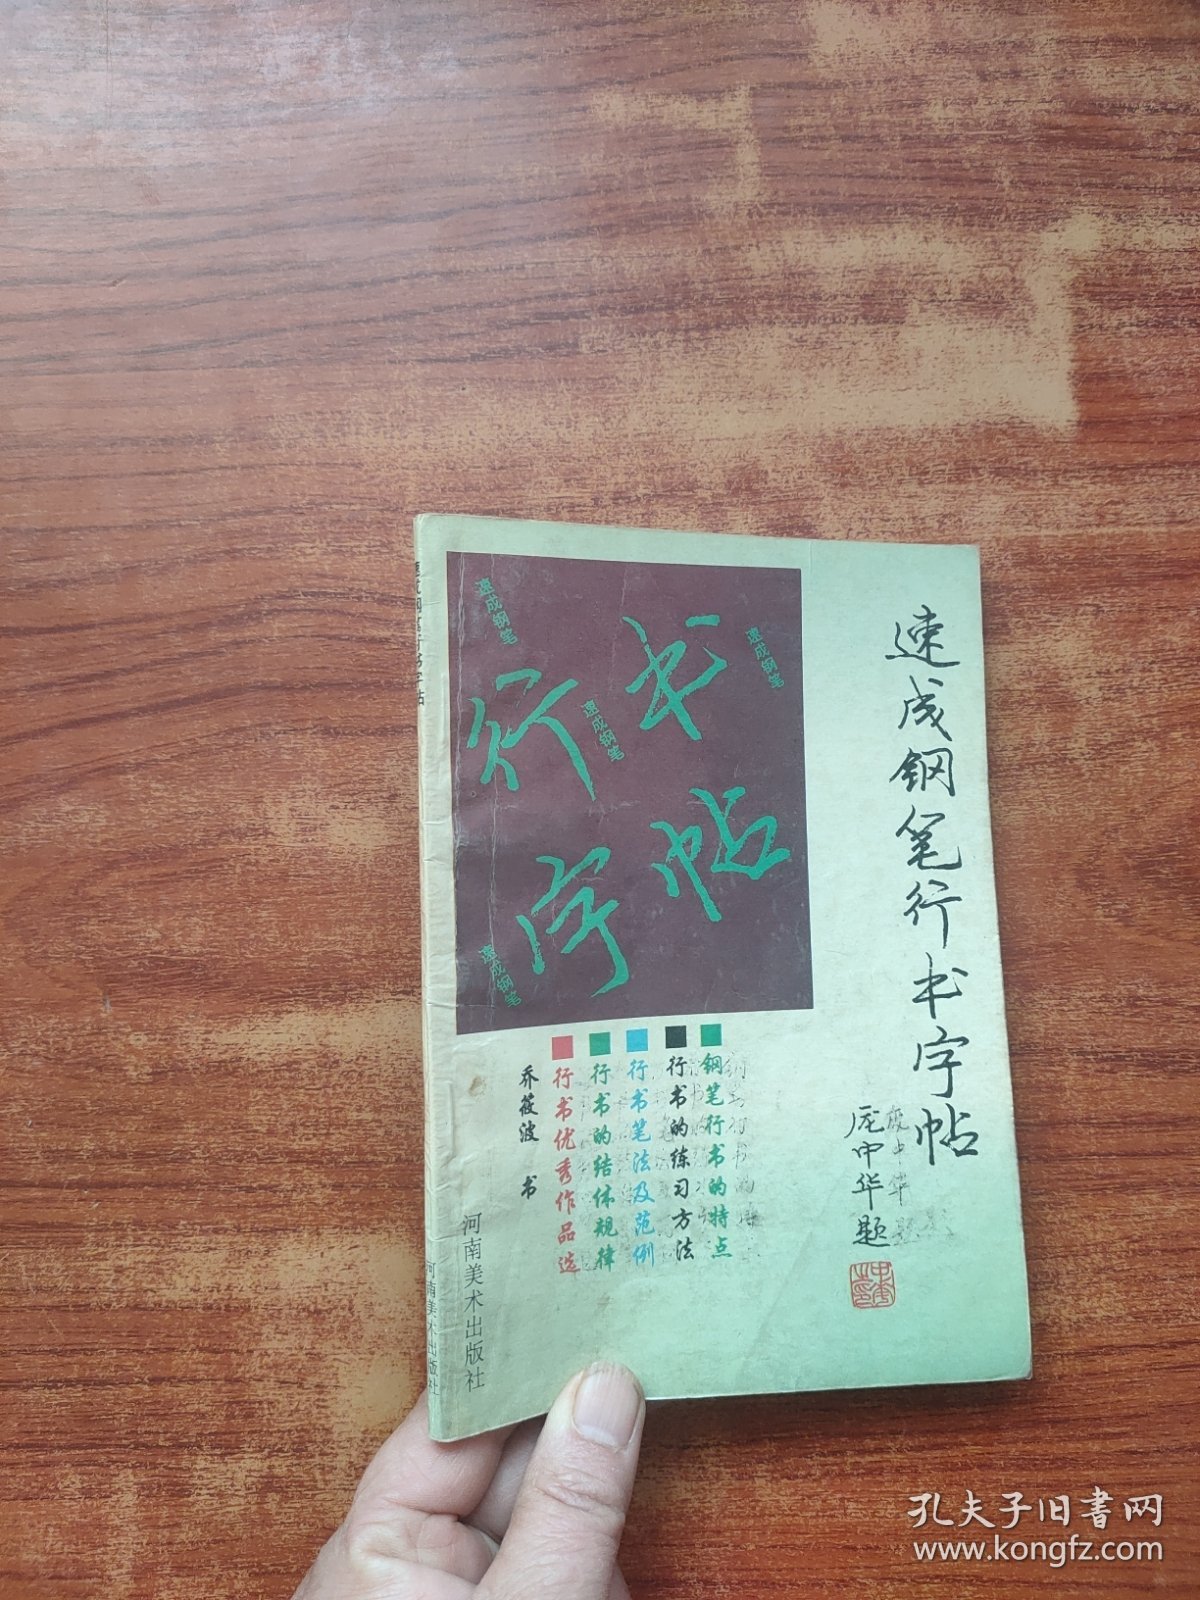 速成钢笔行书字帖
庞中华题
速成钢笔
速成钢笔
速成钢笔
速成钢笔
行书
字帖
钢笔行书的特点
行书的练习方法
行书笔法及范例
行书的结体规律
行书优秀作品选
乔薇波 书
河南美术出版社
速成钢笔行书字帖
河南美术出版社
孔夫子旧書网
www.kongfz.com